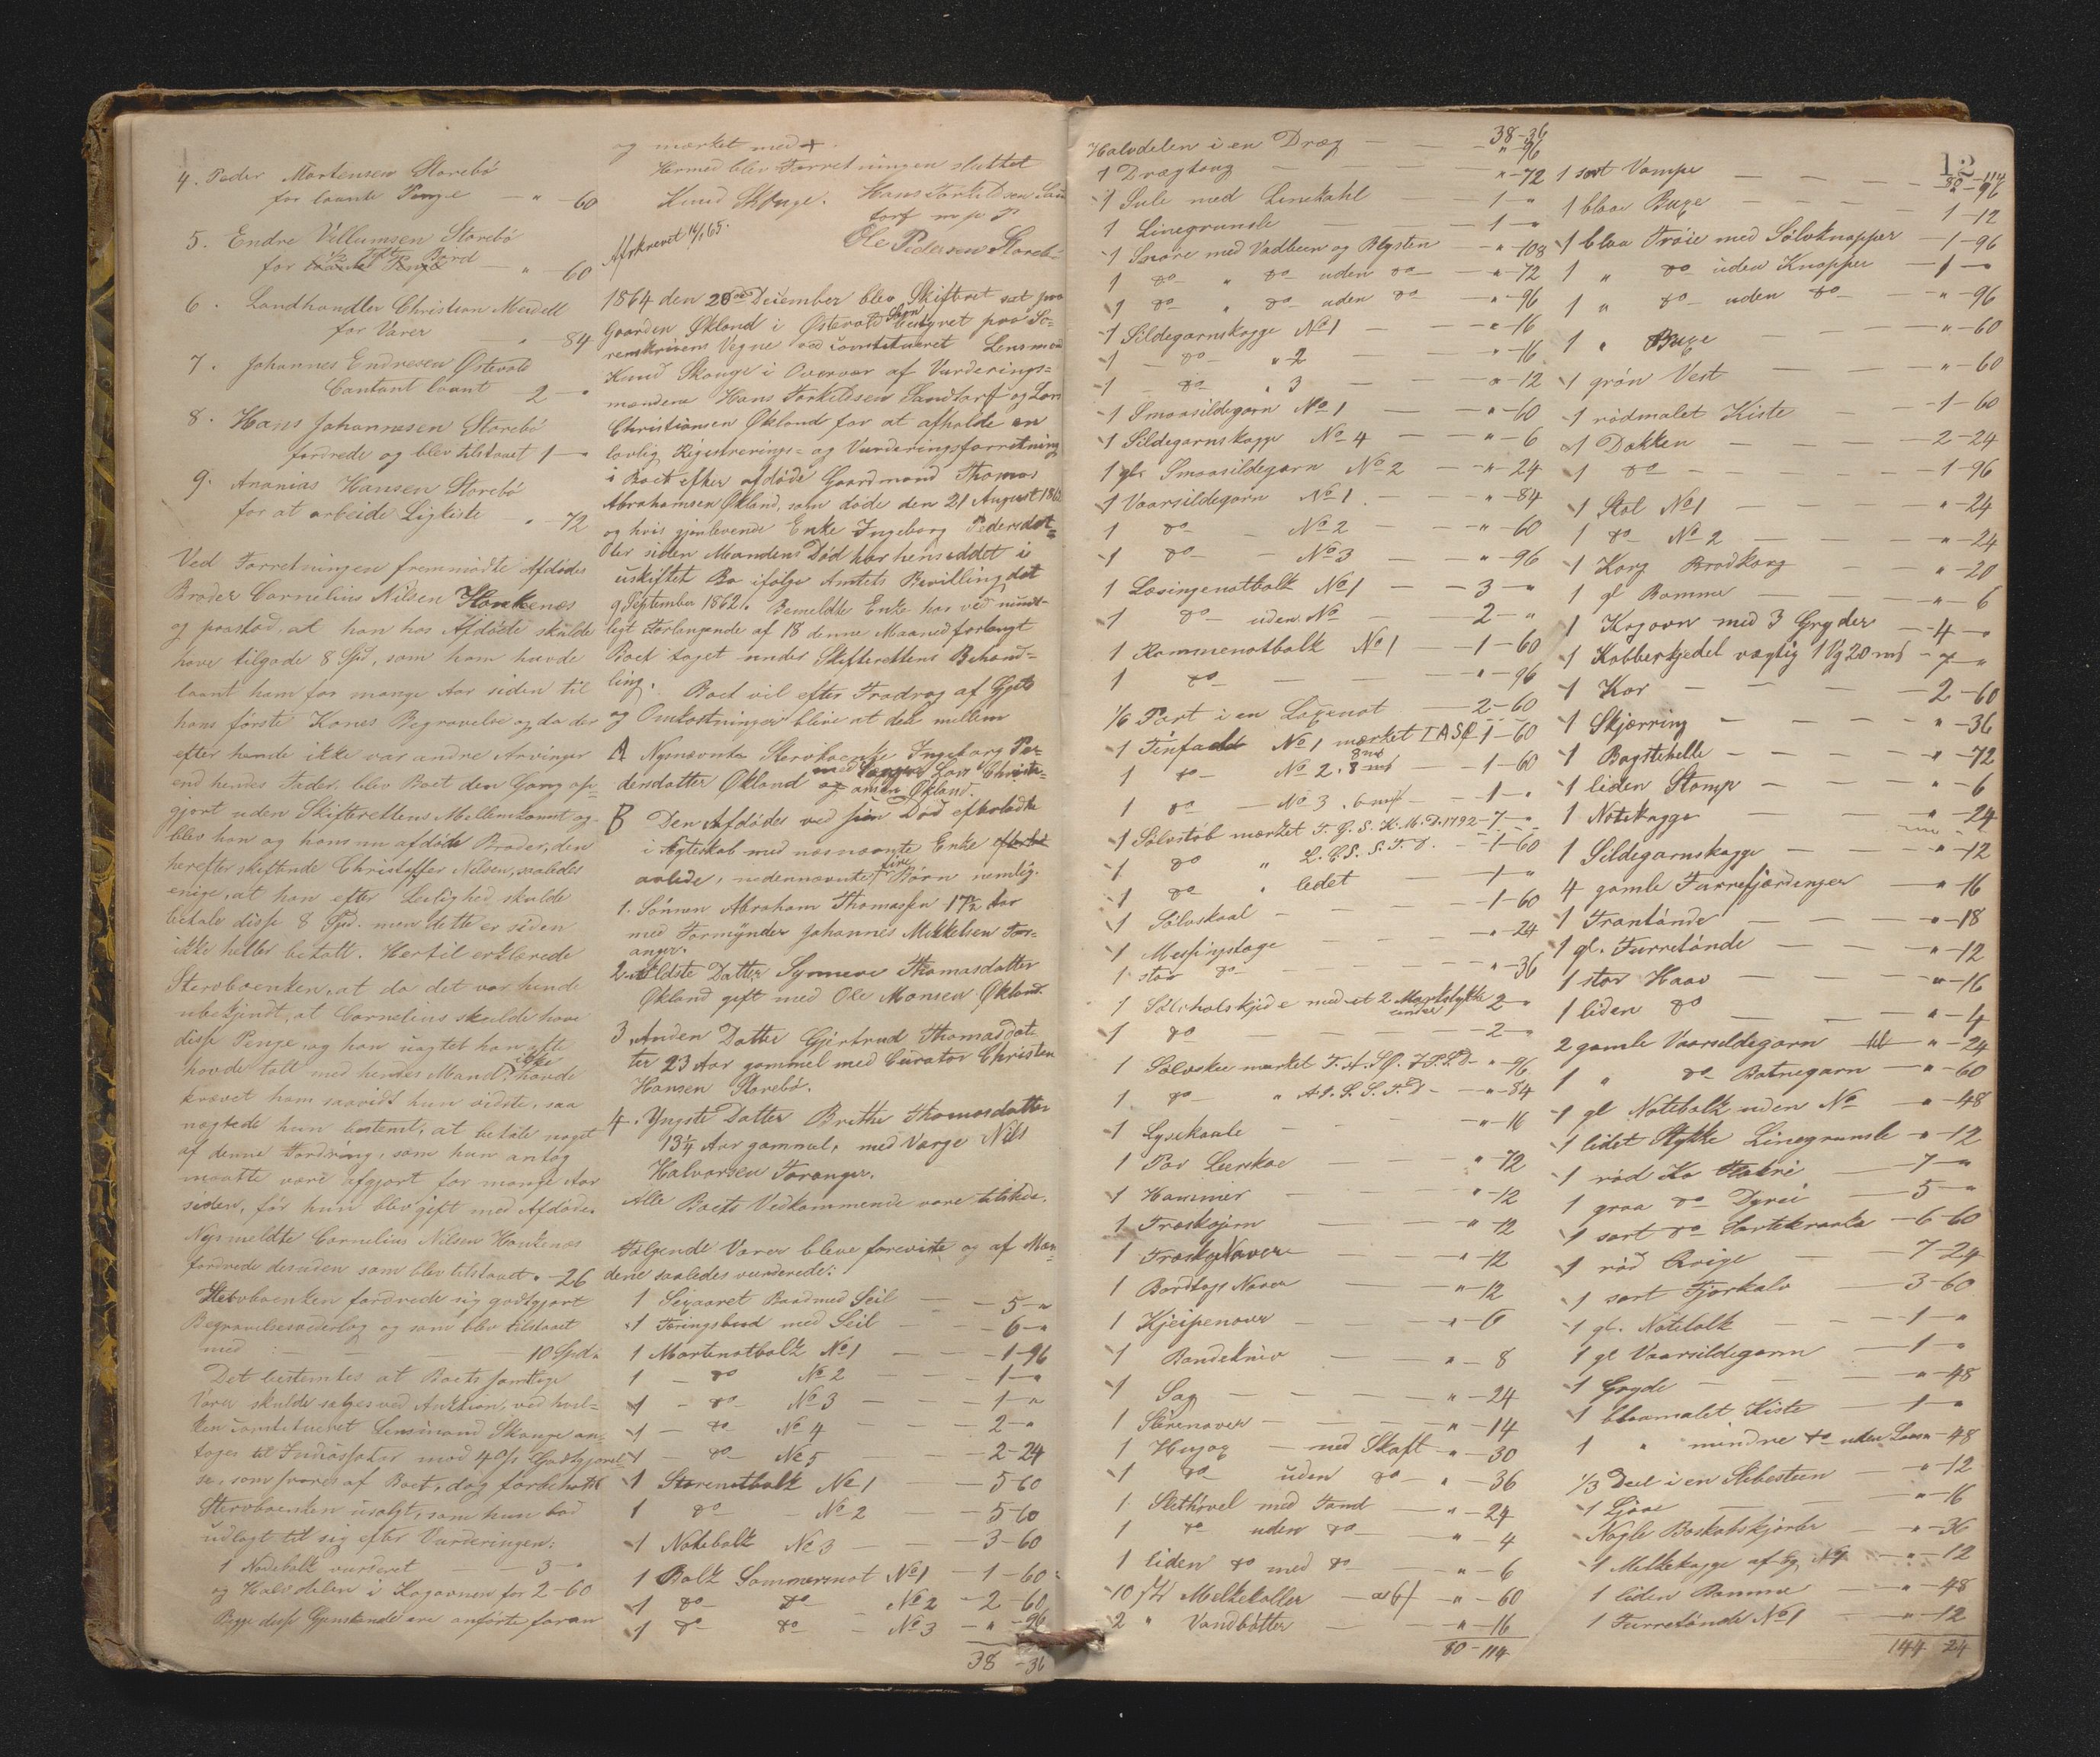 4. Peder Mortensen Storebö
for laante Penge — " 60
5. Endre Villumsen Storebö
for 1/2 Tylt Bord — " 60
6. Landhandler Christian Meidell
for Varer " 84
7. Johannes Endresen Östevold
Contant laant 2 — "
8. Hans Johannesen Storebö
fordrede og blev tilstaaet 1 — "
9. Ananias Hansen Storebö
for at arbeide Ligkiste " 72
Ved Forretningen fremmödte Afdödes
Broder Cornelius Nilsen Haukenæs
og paastod, at han hos Afdöde skulde
have tilgode 8 Spd, som han havde
laant ham for mange Aar siden til
hans förste Kones Begravelse og da der
efter hende ikke var andre Arvinger
end hendes Fader, blev Boet den Gang op-
gjort uden Skifterettens Mellemkomst og
blev han og hans nu afdöde Broder, den
herefter skiftende Christoffer Nilsen, saaledes
enige, at han efter Leilighed skulde
betale disse 8 Spd. men dette er siden
ikke heller betalt. Hertil erklærede
Stervboenken, at da det var hende
ubekjendt, at Cornelius skulde have
disse Penge, og han uagtet han ofte
havde talt med hendes Mand, ikke havde
krævet ham saavidt hun vidste, saa
nægtede hun bestemt, at betale noget
af denne Fordring, som hun antog
maatte være afgjort for mange Aar
siden, för hun blev gift med Afdöde.
Nysmeldte Cornelius Nilsen Haukenæs
fordrede desuden som blev tilstaaet " - 26
Stervboenken fordrede sig godtgjort
Begravelsesvederlag og som blev tilstaaet
med: — — — 10 Spd "
Det bestemtes at Boets samtlige
Varer skulde sælges ved Auktion, ved hvil-
ken constitueret Lensmand Skauge an-
toges til Incassator mod 4 % Godtgjörel-
se, som svares af Boet, dog forbeholdt
Stervboenken usolgt, som hun bad
udlagt til sig efter Vurderingen:
1 Notebolk vurderet — 3 — "
og Halvdelen i Kogovnen for 2-60
Begge disse Gjenstande ere anförte foran
og mærket med +.
Hermed blev Forretningen sluttet
Knud Skauge. Hans Torkildsen San
torf m p P
Ole Pedersen Storebö
Afskrevet 16/1 65.
1864 den 20de December blev Skifteret sat paa
Gaarden Økland i Østevold Sogn bestyret paa So-
renskrivens Vegne ved constitueret Lensmand
Knud Skauge i Overvær af Vurderings-
mændene Hans Torkildsen Sandtorf og Lars
Christiansen Økland for at afholde en
lovlig Registrerings- og Vurderingsforretning
i Boet efter afdöde Gaardmand Thomas
Abrahamsen Økland, som döde den 21 August 186
og hvis gjenlevende Enke Ingeborg Pedersdat-
ter siden Mandens Död har hensiddet i
uskiftet Bo ifölge Amtets Bevilling dat
9 September 1862. Bemeldte Enke har ved mundt-
ligt Forlangende af 18 denne Maaned forlangt
Boet taget under Skifterettens Behand-
ling. Boet vil efter Fradrag af Gjeld
og Omkostninger blive at dele mellem
A Nysnævnte Stervboenke Ingeborg Pe-
dersdatter Økland med Laugværge Lars Christi-
ansen Økland.
B Den Afdödes ved sin Död efterladte
i Ægteskab med næsnævnte Enke
avlede, nedennævnte fire Börn nemlig.
1. Sönnen Abraham Thomassen 17½ Aar
med Formynder Johannes Mikkelsen For-
anger.
2. Ældste Datter Synneve Thomasdatter
Økland gift med Ole Monsen Økland.
3. Anden Datter Gjertrud Thomasdat-
ter 23 Aar gammel med Curator Christen
Hansen Storebö.
4. Yngste Datter Brithe Thomasdatter
13¼ Aar gammel, med Værge Nils
Halvorsen Foranger.
Alle Boets Vedkommende vare tilstede.
Fölgende Varer bleve foreviste og af Mæn-
dene saaledes vurderede:
1 Sexaaret Baad med Seil — 5 - "
1 Færingsbaad med Seil — 6 - "
1 Mortenotbolk No 1 — 1-96
1 — do No 2 — 1 - "
1 — do No 3 — 1 - "
1 — do No 4 — 2 - "
1 — do No 5 — 2-24
1 Storenotbolk No 1 — 5-60
1 do — No 2 — 5-60
1 Notebolk No 3 — 3-60
1 Bolk Sommernot No 1 - 1-60
1 do — do — No 2 - 2-60
1 do — do — No 3 - " -96
38 - 36
38-36
Halvdelen i en Dræg — " - 96
1 Drægtoug — " -72
1 Sule med Linekahl — 1 - "
1 Linegrunsle — 1 - "
1 Snöre med Vadbeen og Blysten — " -108
1 do " do uden do — " -72
1 do " do uden do — " -96
1 Sildegarnskagge No 1 — " -16
1 — do — " 2 — " -16
1 do " 3 — " -12
1 Smaasildegarn No 1 — " -60
1 Sildegarnskagge No 4 — " -6
1 gl. Smaasildegarn No 2 — " -24
1 Vaarsildegarn No 1 — " -84
1 do — No 2 — " -60
1 do — No 3 — " -96
1 Løsingenotbolk No 1 — 3 - "
1 do — uden No — 2 - "
1 Rammenotbolk No 1 — 1-60
1 do — " -96
1/6 Part i en Løgenot — 2-60
1 Tinfad No 1 mærket T A S Ø 1-60
1 do — No 2. 8 mk — 1-60
1 do — No 3. 6 mk — 1 - "
1 Sölvstöb mærket T. G. S. K. M. D. 1792 - 7 - "
1 do " L. C. S. S. T. D. — 1-60
1 do " ledet — 1 - "
1 Sölvskaal — 1-60
1 Messingstage — " -24
1 stor do — " -36
1 Sölvhalskjæde med et 2 Markstykke under 2 - "
1 do — 2 - "
1 Sölvskee mærket T. A. S. Ø. I. P. D. — " -96
1 do — " A. L. S. S. T. D — " -84
1 Lysekaale — " -16
1 Par Leerskoe — " -72
1 Hammer — " -12
1 Træskojern — " -12
1 Træskonaver — " -12
1 Bordtopnaver — " -12
1 Kjeipenaver — " -6
1 Bandekniv — " -8
1 Sag — " -24
1 Störenaver — " -14
1 Hugøg — med Skaft — " -30
1 do uden do — " -36
1 Sletthövel med Tand — " -24
1 do uden do — " -4
1 liden do med do — " -6
10 stk Melkekoller — a 6 — " -60
2 " Vandbötter — " -16
80-114
12
80-114
1 sort Vampe — " -96
1 blaa Buxe — 1-12
1 blaa Tröie med Sölvknapper — 1-96
1 " do uden Knapper — 1 - "
1 " do uden do — " -96
1 " Buxe — " -60
1 grön Vest — " -60
1 rödmalet Kiste — 1-60
1 Dækken — 2-24
1 do — 1-96
1 Stol No 1 — " -24
1 do No 2 — " -24
1 Korg Brödkorg — " -20
1 gl Bomme — " -6
1 Kogovn med 3 Gryder — 4 - "
1 Kobberkjedel vægtig 1 Vg 20 mk - 7 - "
1 Kar — 2-60
1 Skjærring — " -36
1 Bagstehelle — " -72
1 liden Stamp — " -6
1 Notekagge — " -24
1 Sildegarnskagge — " -12
4 gamle Furrefjærdinger — " -16
1 Trantönde — " -18
1 gl. Furretönde — " -12
1 stor Haav — " -16
1 liden do — " -4
2 gamle Vaarsildegarn — " -24
1 " do — Botnegarn — " -60
1 gl Notebolk uden No — " -48
1 lidet Stykke Linegrunsle — " -12
1 röd Ko — 7 - "
1 graa do Dyrei — 5 - "
1 sort do Sortekraaka — 6-60
1 röd Qvige — 7-24
1 sort Fjorkalv — 3-60
1 gl. Notebolk — 1 - "
1 gl Vaarsildegarn — 1 - "
1 Gryde — " -48
1 blaamalet Kiste — 1 - "
1 " mindre do uden Laas — " -48
1/3 Deel i en Slibesteen — " -12
1 Ljaae — " -16
Nogle Boskabskjørler — " -36
1 Melkekagge — " -12
1 liden Bomme — " -48
1 Furretönde No 1 — " -12
144 - 24